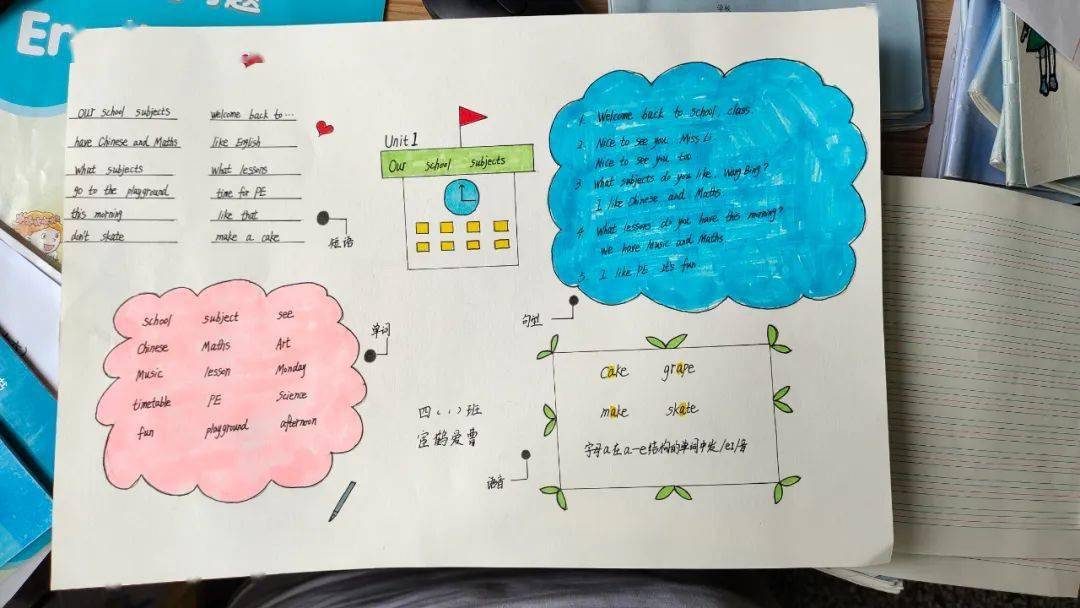 En
题
学校
Our school subjects
welcome back to…
have Chinese and Maths
like English
what subjects
what lessons
go to the playground
time for PE
this morning
like that
don't skate
make a cake
短语
Unit 1
Our school subjects
1. Welcome back to school, class.
2. Nice to see you Miss Li
Nice to see you too
3. What subjects do you like, Wang Bing?
I like Chinese and Maths
4. What lessons do you have this morning?
we have Music and Maths
5. I like PE It's fun
句型
school subject see
Chinese Maths Art
Music lesson Monday
timetable PE Science
fun playground afternoon
单词
cake grape
make skate
字母a在a-e结构的单词中发/eɪ/音
语音
四(1)班